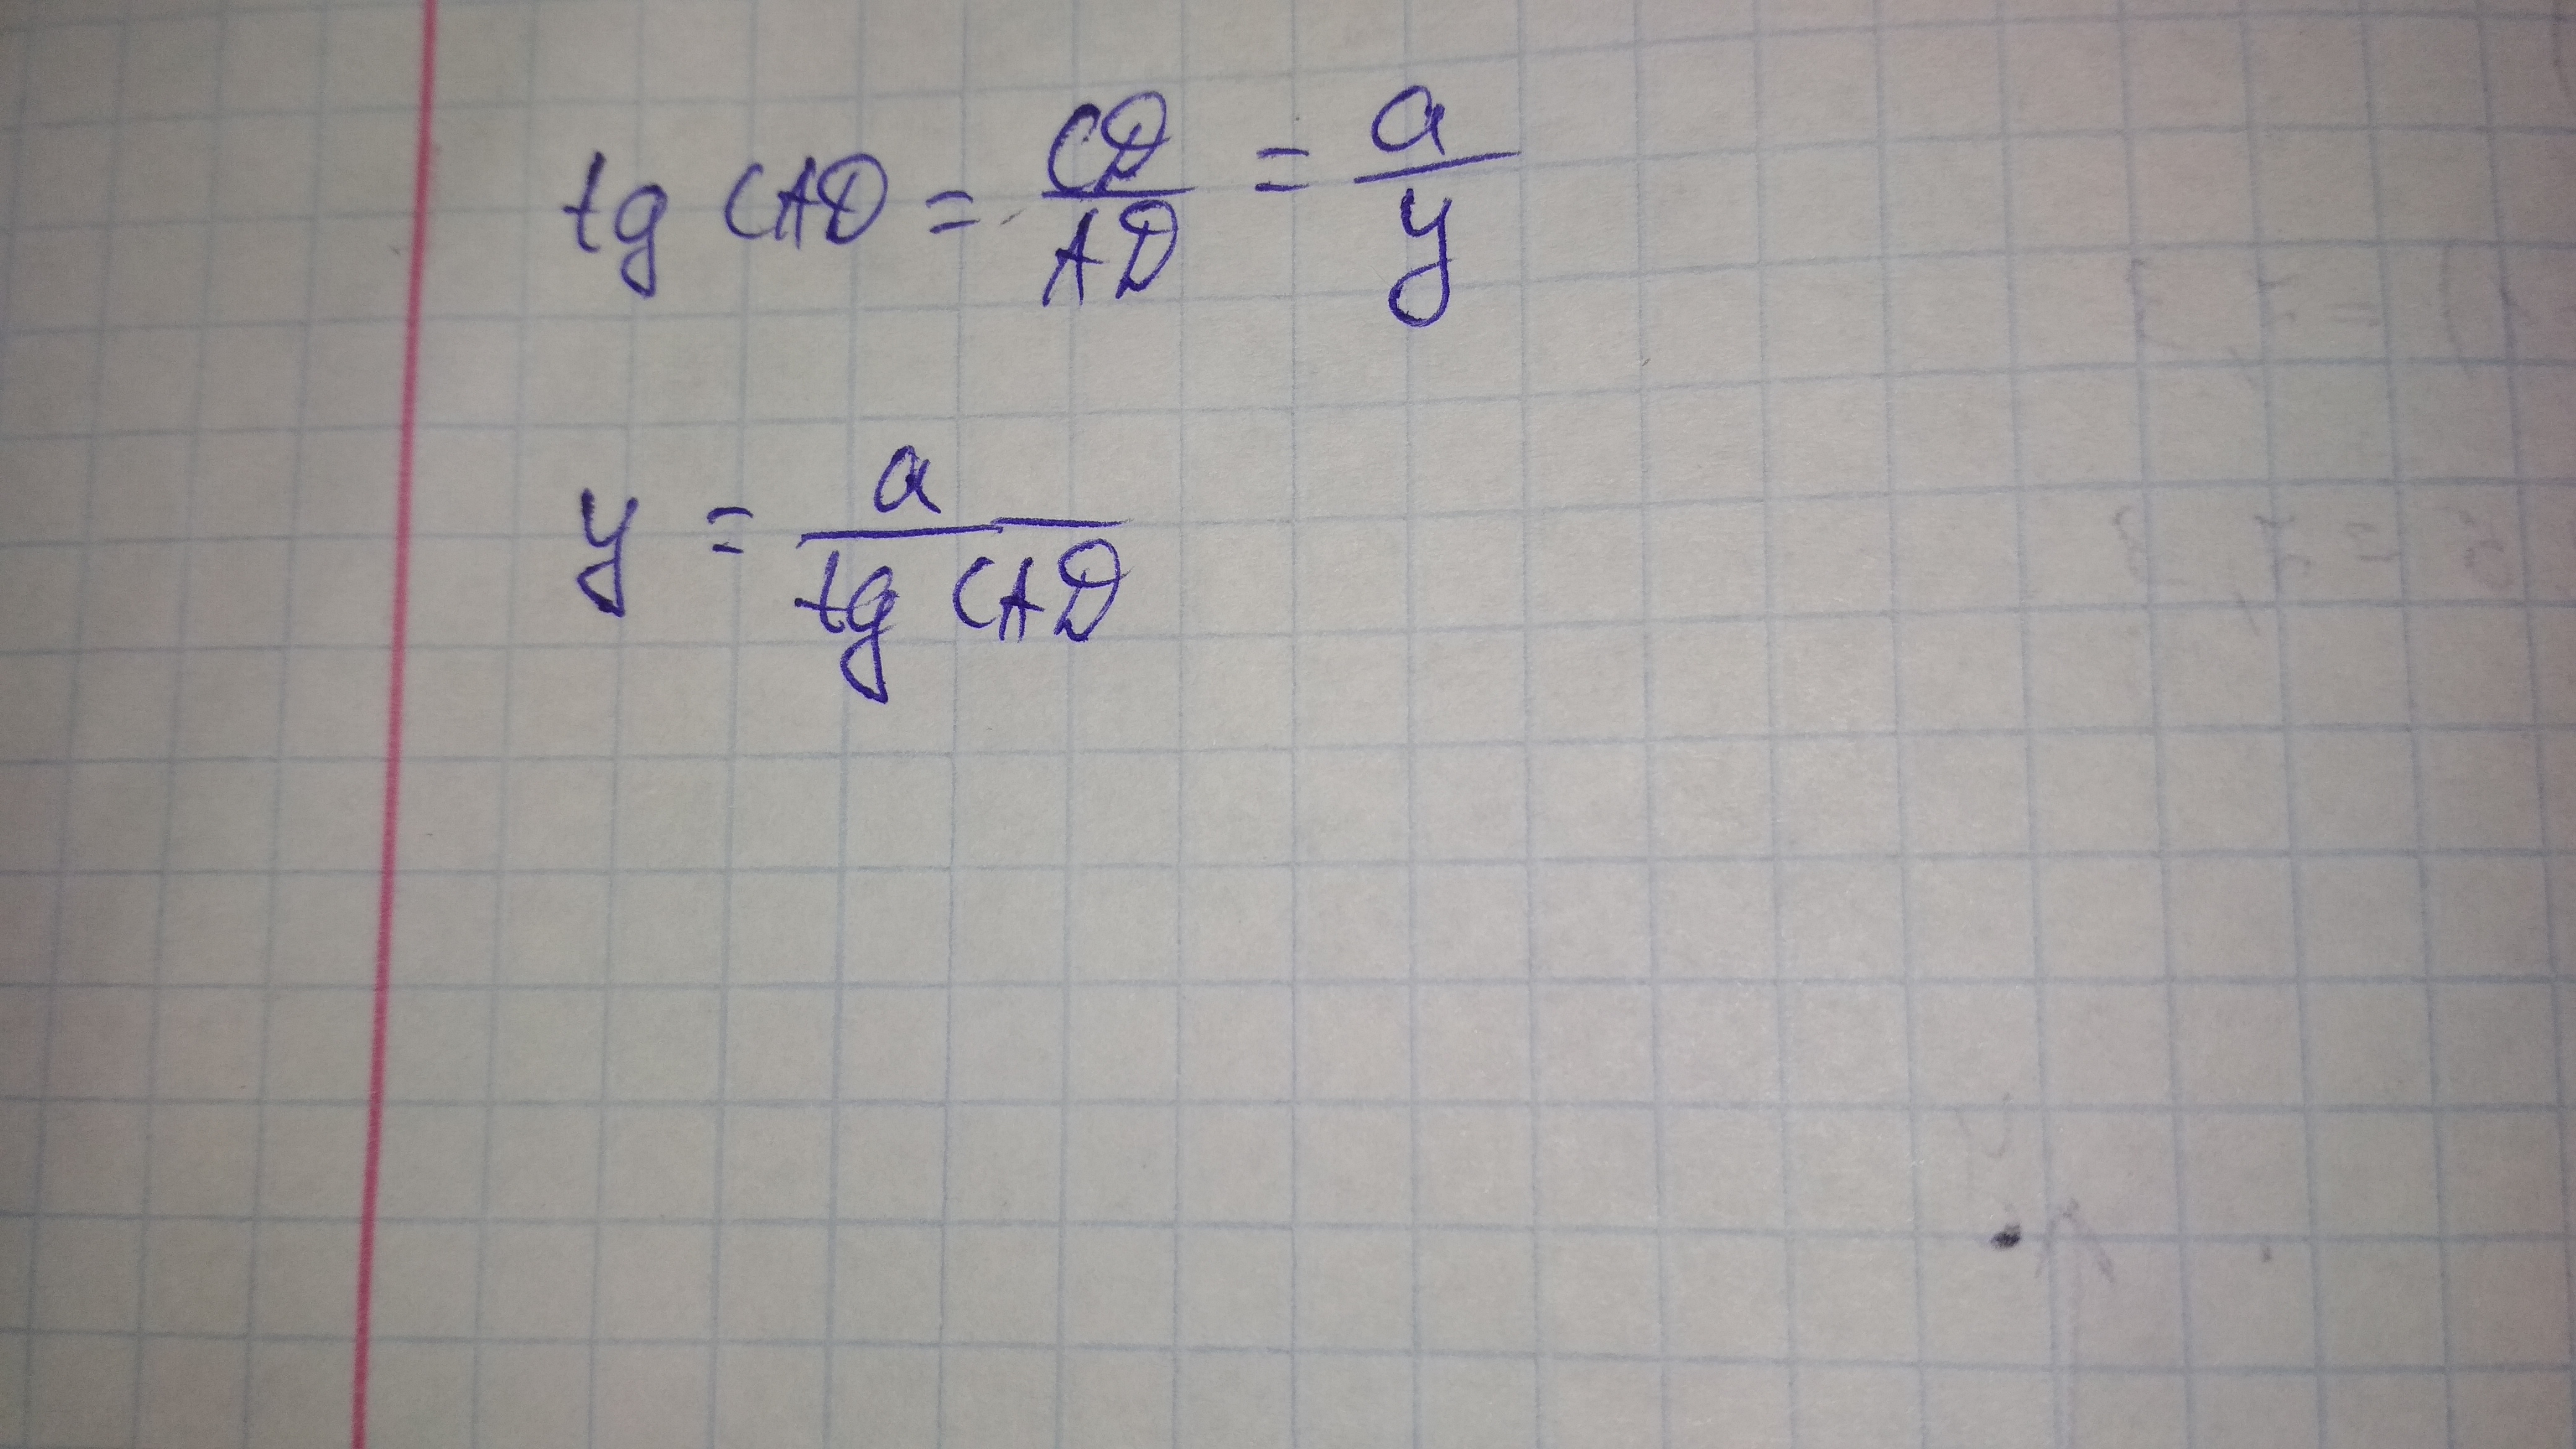 tg CAD = CD/AD = a/y
y = a/tg CAD